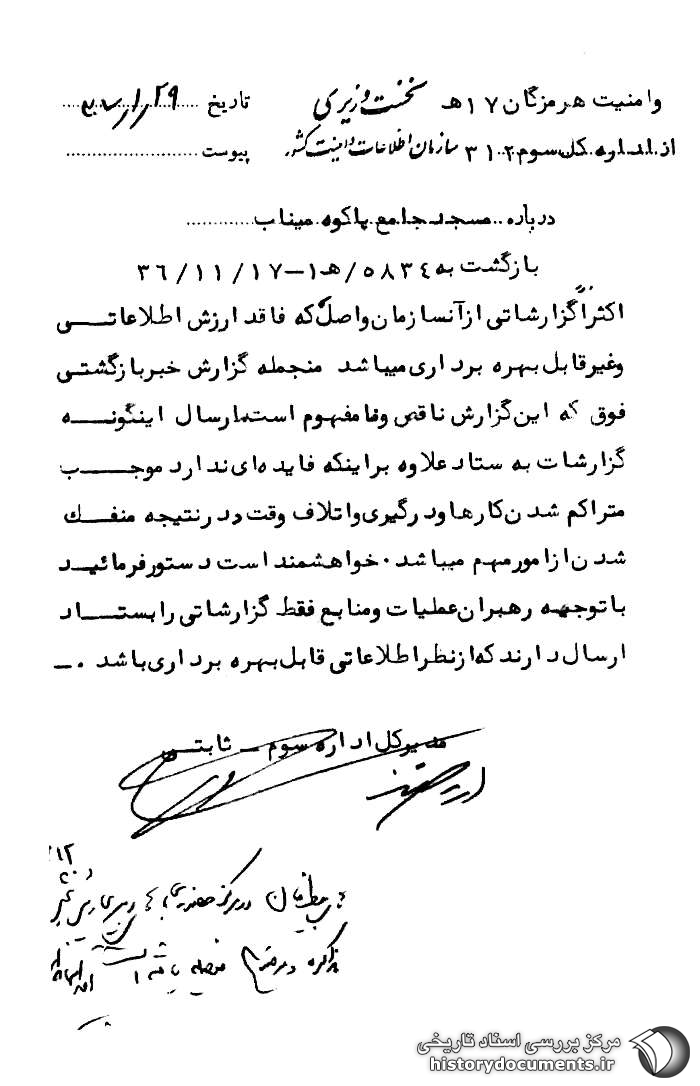 وامنیت هرمزگان ۱۷هـ نخست وزیری تاریخ
از اداره کل سوم ۳۱۲ سازمان اطلاعات وامنیت کشور پیوست
درباره مسجد جامع پاکوه میناب
بازگشت به ۵۸۳٤/هـ۱-۳۶/۱۱/۱۷
اکثراً گزارشاتی از آنسازمان واصل که فاقد ارزش اطلاعاتـــی
وغیرقابل بهره برداری میباشد منجمله گزارش خبر بازگشتی
فوق که این گزارش ناقص ونامفهوم است ارسال اینگونــه
گزارشات به ستاد علاوه براینکه فایده ای ندارد موجــب
متراکم شدن کارها و درگیری و اتلاف وقت و در نتیجه منفــک
شدن از امور مهم میباشد. خواهشمند است دستور فرمائیــد
با توجیه رهبران عملیات و منابع فقط گزارشاتی را بستــاد
ارسال دارند که از نظر اطلاعاتی قابل بهره برداری باشد .ـ
مدیر کل اداره سوم ــ ثابتــی
مرکز بررسی اسناد تاریخی
historydocuments.ir